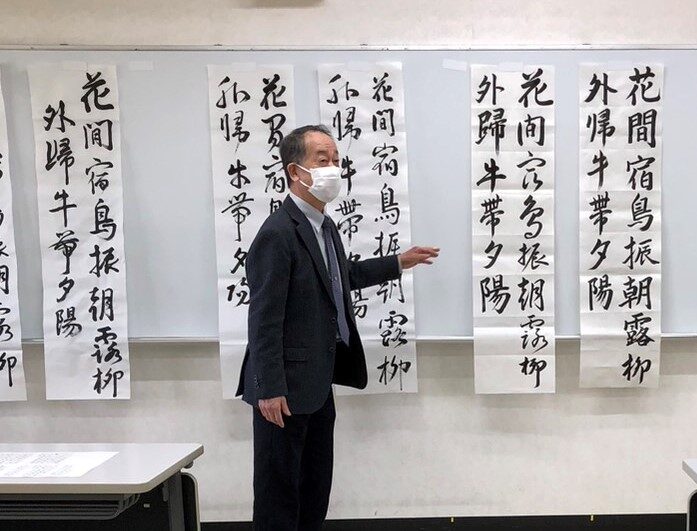 花間宿鳥振朝露柳
外帰牛帶夕陽
花間宿鳥振朝露柳
外歸牛帶夕陽
花間宿鳥振朝露柳
外帰牛帶夕陽
花間宿鳥
外帰牛帶夕陽
花間宿鳥振朝露柳
外帰牛帶夕陽